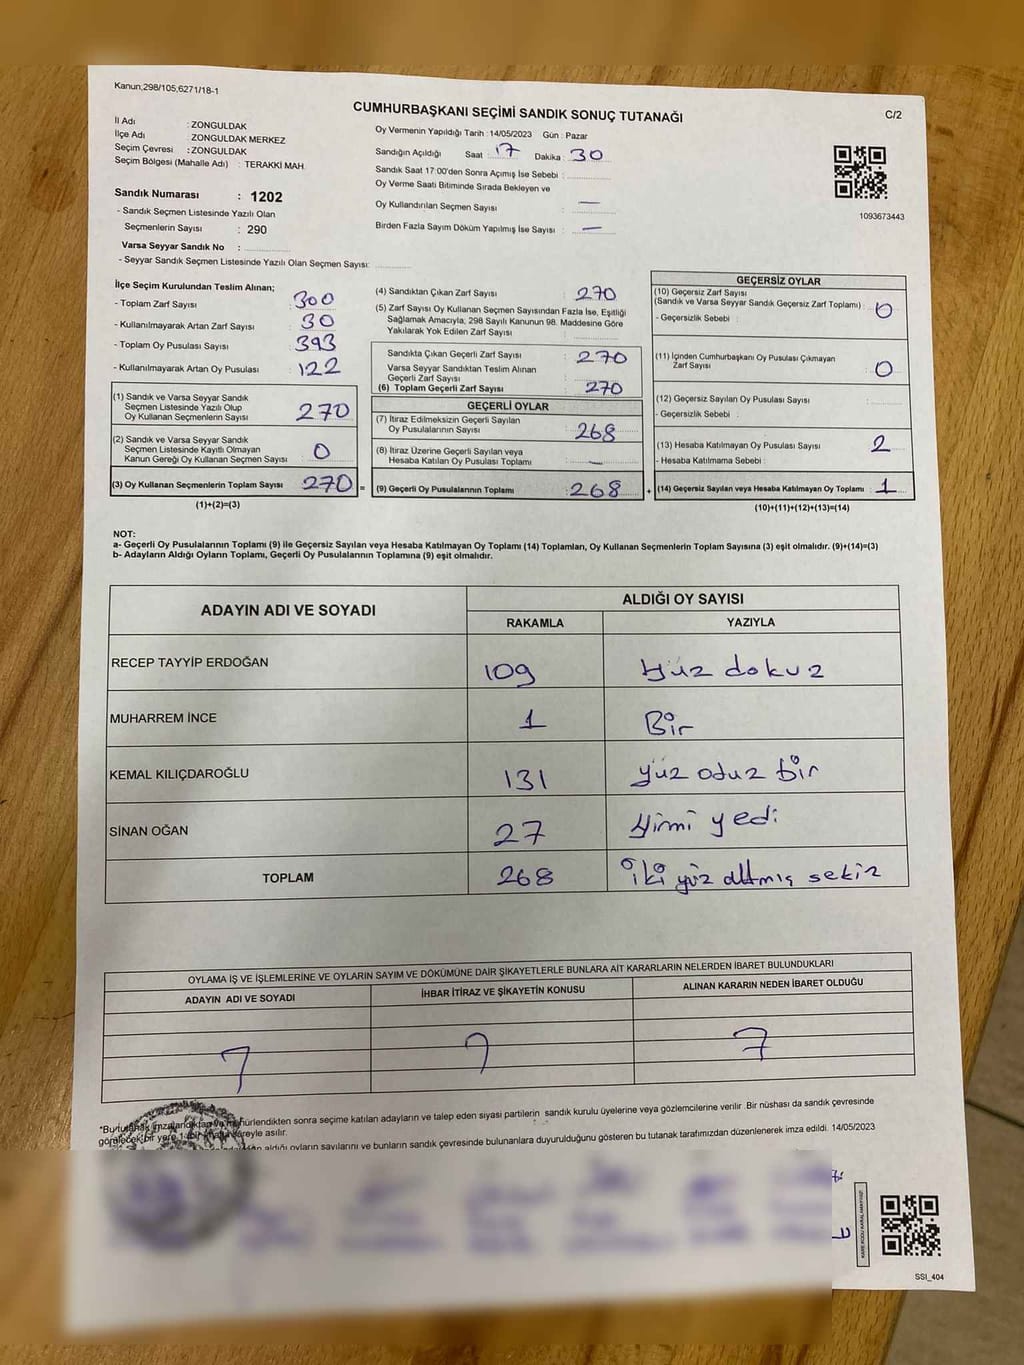 Kanun;298/105,6271/18-1
CUMHURBAŞKANI SEÇİMİ SANDIK SONUÇ TUTANAĞI
C/2
İl Adı : ZONGULDAK
İlçe Adı : ZONGULDAK MERKEZ
Seçim Çevresi : ZONGULDAK
Seçim Bölgesi (Mahalle Adı) : TERAKKİ MAH.
Sandık Numarası : 1202
- Sandık Seçmen Listesinde Yazılı Olan
Seçmenlerin Sayısı : 290
Varsa Seyyar Sandık No :
- Seyyar Sandık Seçmen Listesinde Yazılı Olan Seçmen Sayısı:
Oy Vermenin Yapıldığı Tarih : 14/05/2023 Gün : Pazar
Sandığın Açıldığı Saat : 17 Dakika : 30
Sandık Saat 17:00'den Sonra Açımış İse Sebebi :
Oy Verme Saati Bitiminde Sırada Bekleyen ve
Oy Kullandırılan Seçmen Sayısı : —
Birden Fazla Sayım Döküm Yapılmış İse Sayısı : —
1093673443
İlçe Seçim Kurulundan Teslim Alınan;
- Toplam Zarf Sayısı : 300
- Kullanılmayarak Artan Zarf Sayısı : 30
- Toplam Oy Pusulası Sayısı : 393
- Kullanılmayarak Artan Oy Pusulası : 122
(1) Sandık ve Varsa Seyyar Sandık
Seçmen Listesinde Yazılı Olup
Oy Kullanan Seçmenlerin Sayısı : 270
(2) Sandık ve Varsa Seyyar Sandık
Seçmen Listesinde Kayıtlı Olmayan
Kanun Gereği Oy Kullanan Seçmen Sayısı : 0
(3) Oy Kullanan Seçmenlerin Toplam Sayısı : 270 =
(1)+(2)=(3)
(4) Sandıktan Çıkan Zarf Sayısı : 270
(5) Zarf Sayısı Oy Kullanan Seçmen Sayısından Fazla İse, Eşitliği
Sağlamak Amacıyla, 298 Sayılı Kanunun 98. Maddesine Göre
Yakılarak Yok Edilen Zarf Sayısı :
Sandıkta Çıkan Geçerli Zarf Sayısı : 270
Varsa Seyyar Sandıktan Teslim Alınan
Geçerli Zarf Sayısı :
(6) Toplam Geçerli Zarf Sayısı : 270
GEÇERLİ OYLAR
(7) İtiraz Edilmeksizin Geçerli Sayılan
Oy Pusulalarının Sayısı : 268
(8) İtiraz Üzerine Geçerli Sayılan veya
Hesaba Katılan Oy Pusulası Toplamı : —
(9) Geçerli Oy Pusulalarının Toplamı : 268 +
GEÇERSİZ OYLAR
(10) Geçersiz Zarf Sayısı
(Sandık ve Varsa Seyyar Sandık Geçersiz Zarf Toplamı) : 0
- Geçersizlik Sebebi :
(11) İçinden Cumhurbaşkanı Oy Pusulası Çıkmayan
Zarf Sayısı : 0
(12) Geçersiz Sayılan Oy Pusulası Sayısı :
- Geçersizlik Sebebi :
(13) Hesaba Katılmayan Oy Pusulası Sayısı : 2
- Hesaba Katılmama Sebebi :
(14) Geçersiz Sayılan veya Hesaba Katılmayan Oy Toplamı : 1
(10)+(11)+(12)+(13)=(14)
NOT:
a- Geçerli Oy Pusulalarının Toplamı (9) ile Geçersiz Sayılan veya Hesaba Katılmayan Oy Toplamı (14) Toplamları, Oy Kullanan Seçmenlerin Toplam Sayısına (3) eşit olmalıdır. (9)+(14)=(3)
b- Adayların Aldığı Oyların Toplamı, Geçerli Oy Pusulalarının Toplamına (9) eşit olmalıdır.
ADAYIN ADI VE SOYADI
ALDIĞI OY SAYISI
RAKAMLA YAZIYLA
RECEP TAYYİP ERDOĞAN 109 Yüz dokuz
MUHARREM İNCE 1 Bir
KEMAL KILIÇDAROĞLU 131 yüz oduz bir
SİNAN OĞAN 27 Yirmi yedi
TOPLAM 268 iki yüz altmış sekiz
OYLAMA İŞ VE İŞLEMLERİNE VE OYLARIN SAYIM VE DÖKÜMÜNE DAİR ŞİKAYETLERLE BUNLARA AİT KARARLARIN NELERDEN İBARET BULUNDUKLARI
ADAYIN ADI VE SOYADI İHBAR İTİRAZ VE ŞİKAYETİN KONUSU ALINAN KARARIN NEDEN İBARET OLDUĞU
*Bu tutanak imzalandıktan ve mühürlendikten sonra seçime katılan adayların ve talep eden siyasi partilerin sandık kurulu üyelerine veya gözlemcilerine verilir. Bir nüshası da sandık çevresinde
görülecek bir yere asılır.
aldığı oyların sayılarını ve bunların sandık çevresinde bulunanlara duyurulduğunu gösteren bu tutanak tarafımızdan düzenlenerek imza edildi. 14/05/2023
KARE KODU KARALAMAYINIZ!
SSI_404